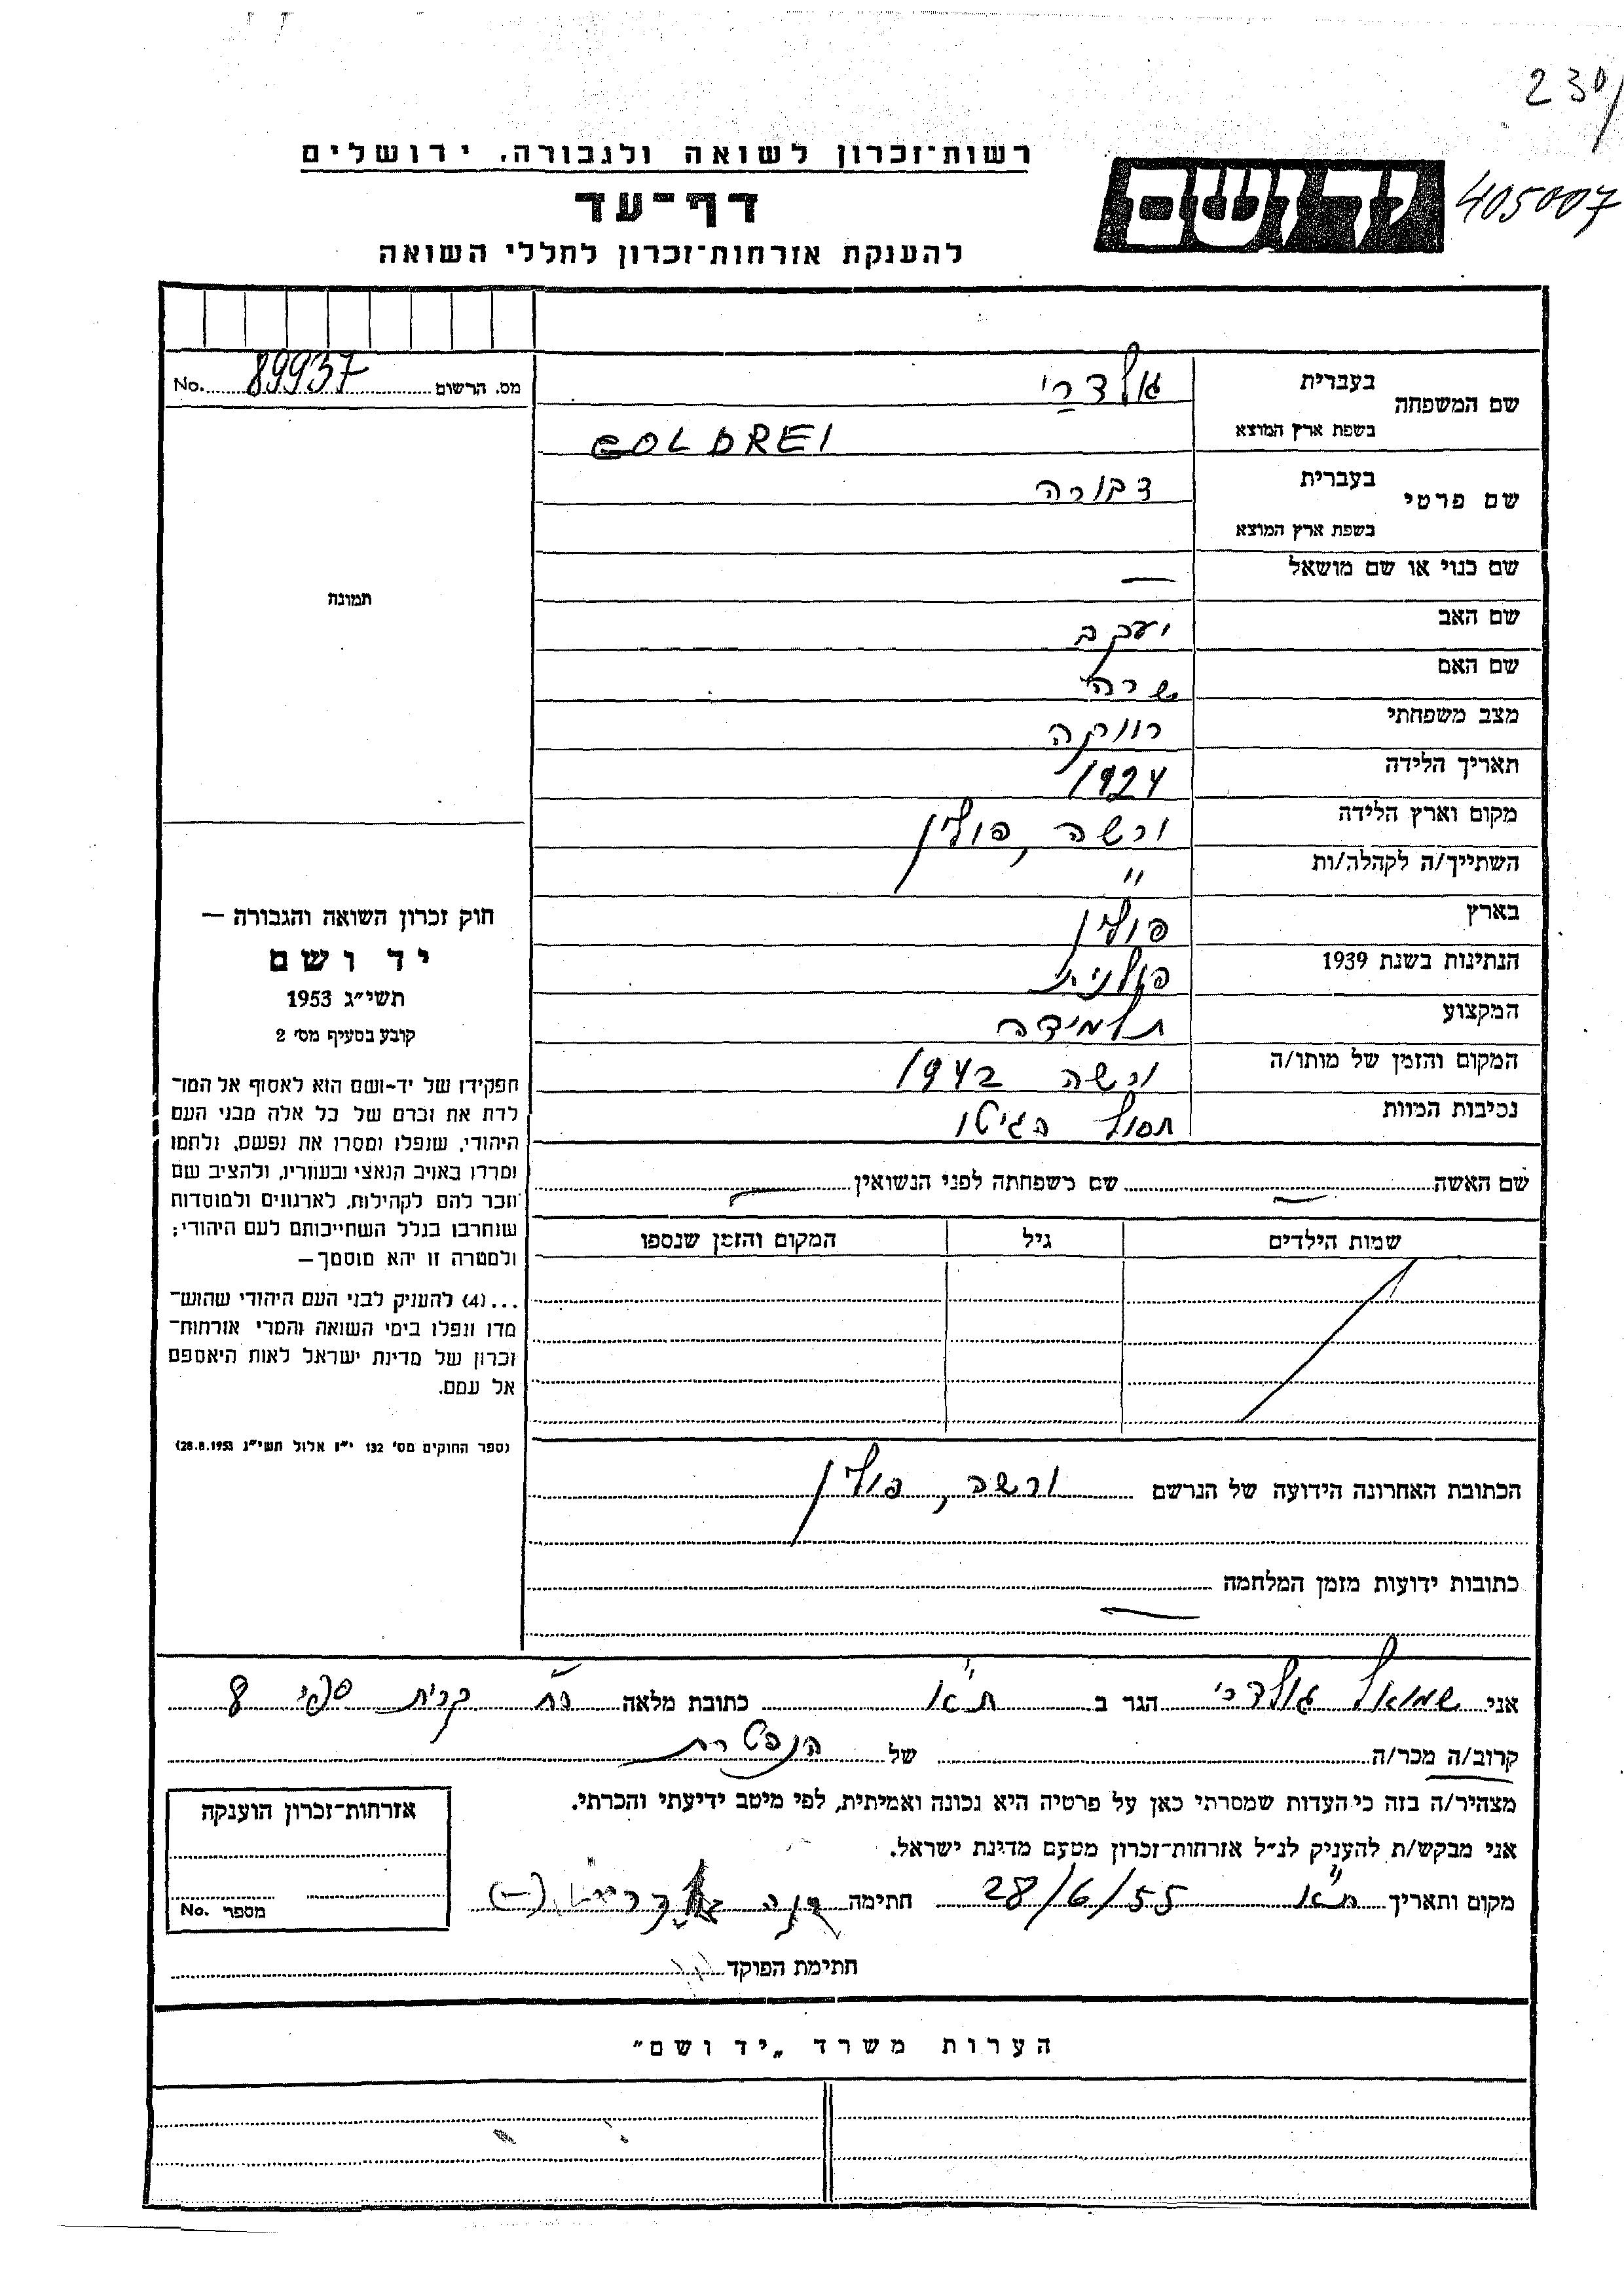 230/
405007
רשות־זכרון לשואה ולגבורה, ירושלים
יד ושם
דף־עד
להענקת אזרחות־זכרון לחללי השואה
מס. הרשום 89937 No.
שם המשפחה בעברית גולדרי
בשפת ארץ המוצא GOLDREI
שם פרטי בעברית דבורה
בשפת ארץ המוצא
שם כנוי או שם מושאל —
שם האב יעקב
שם האם שרה
מצב משפחתי רווקה
תאריך הלידה 1924
מקום וארץ הלידה ורשה, פולין
השתייך/ה לקהלה/ות "
בארץ פולין
הנתינות בשנת 1939 פולנית
המקצוע תלמידה
המקום והזמן של מותו/ה ורשה 1942
נסיבות המוות חסול הגיטו
שם האשה — שם משפחתה לפני הנשואין —
שמות הילדים גיל המקום והזמן שנספו
הכתובת האחרונה הידועה של הנרשם ורשה, פולין
כתובות ידועות מזמן המלחמה —
תמונה
חוק זכרון השואה והגבורה —
יד ושם
תשי״ג 1953
קובע בסעיף מס׳ 2
תפקידו של יד-ושם הוא לאסוף אל המו־
לדת את זכרם של כל אלה מבני העם
היהודי, שנפלו ומסרו את נפשם, נלחמו
ומרדו באויב הנאצי ובעוזריו, ולהציב שם
וזכר להם לקהילות, לארגונים ולמוסדות
שנחרבו בגלל השתייכותם לעם היהודי;
ולמטרה זו יהא מוסמך—
...(4) להעניק לבני העם היהודי שהוש־
מדו ונפלו בימי השואה והמרי אזרחות־
זכרון של מדינת ישראל לאות היאספם
אל עמם.
(ספר החוקים מס׳ 132 י״ז אלול תשי״ג 28.8.1953)
אני שמואל גולדרי הגר ב ת"א כתובת מלאה קרית ספר 8
קרוב/ה מכר/ה של הנפטרת
מצהיר/ה בזה כי העדות שמסרתי כאן על פרטיה היא נכונה ואמיתית, לפי מיטב ידיעתי והכרתי.
אני מבקש/ת להעניק לנ״ל אזרחות־זכרון מטעם מדינת ישראל.
מקום ותאריך ת"א 28/6/55 חתימה (—)
חתימת הפוקד
אזרחות־זכרון הוענקה
מספר No.
הערות משרד „יד ושם״